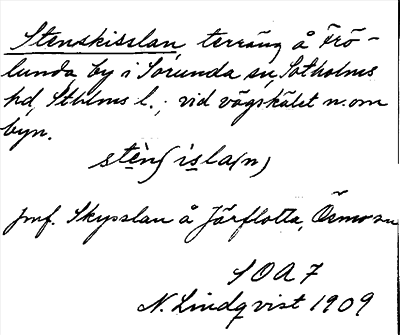 Stenskisslan, terräng å Frö-
lunda by i Sorunda sn, Sotholms
hd, Sthlms l.; vid vägskälet n. om
byn.
stènʃisla(n)
jmf. Skysslan å Järflotta, Ösmo sn
SOA 7
N. Lindqvist 1909